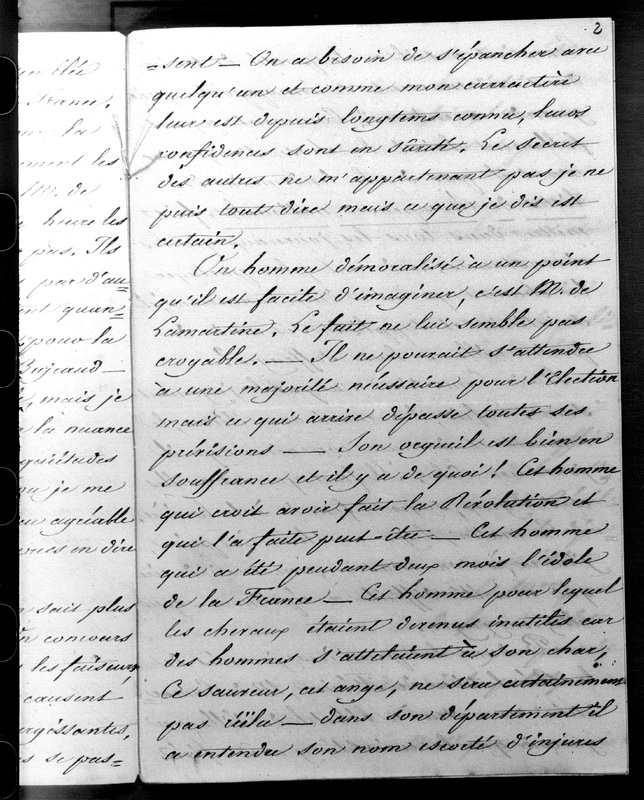 2
=sent — On a besoin de s'épancher avec
quelqu'un et comme mon carractère
leur est depuis longtems connu, leurs
confidences sont en sûreté. Le secret
des autres ne m'appartenant pas je ne
puis tout dire mais ce que je dis est
certain.
Un homme démoralisé à un point
qu'il est facile d'imaginer, c'est M. de
Lamartine. Le fait ne lui semble pas
croyable. — Il ne pouvait s'attendre
à une majorité nécessaire pour l'Election
mais ce qui arrive dépasse toutes ses
prévisions — Son orgueil est bien en
souffrance et il y a de quoi ! Cet homme
qui croit avoir fait la Révolution et
qui l'a faite peut-être — Cet homme
qui a été pendant deux mois l'idole
de la France — Cet homme pour lequel
les chevaux étaient devenus inutiles car
des hommes s'attelaient à son char,
Ce sauveur, cet ange, ne sera certainement
pas réélu — dans son département il
a entendu son nom escorté d'injures
en blée
France.
la
ement les
M. de
heure les
pas. Ils
par d'au=
ent quan=
la
Bujeaud —
, mais je
la nuance
quiétudes
je me
agréable
en dire
sait plus
concours
les faiseurs
causent
,
se pas=